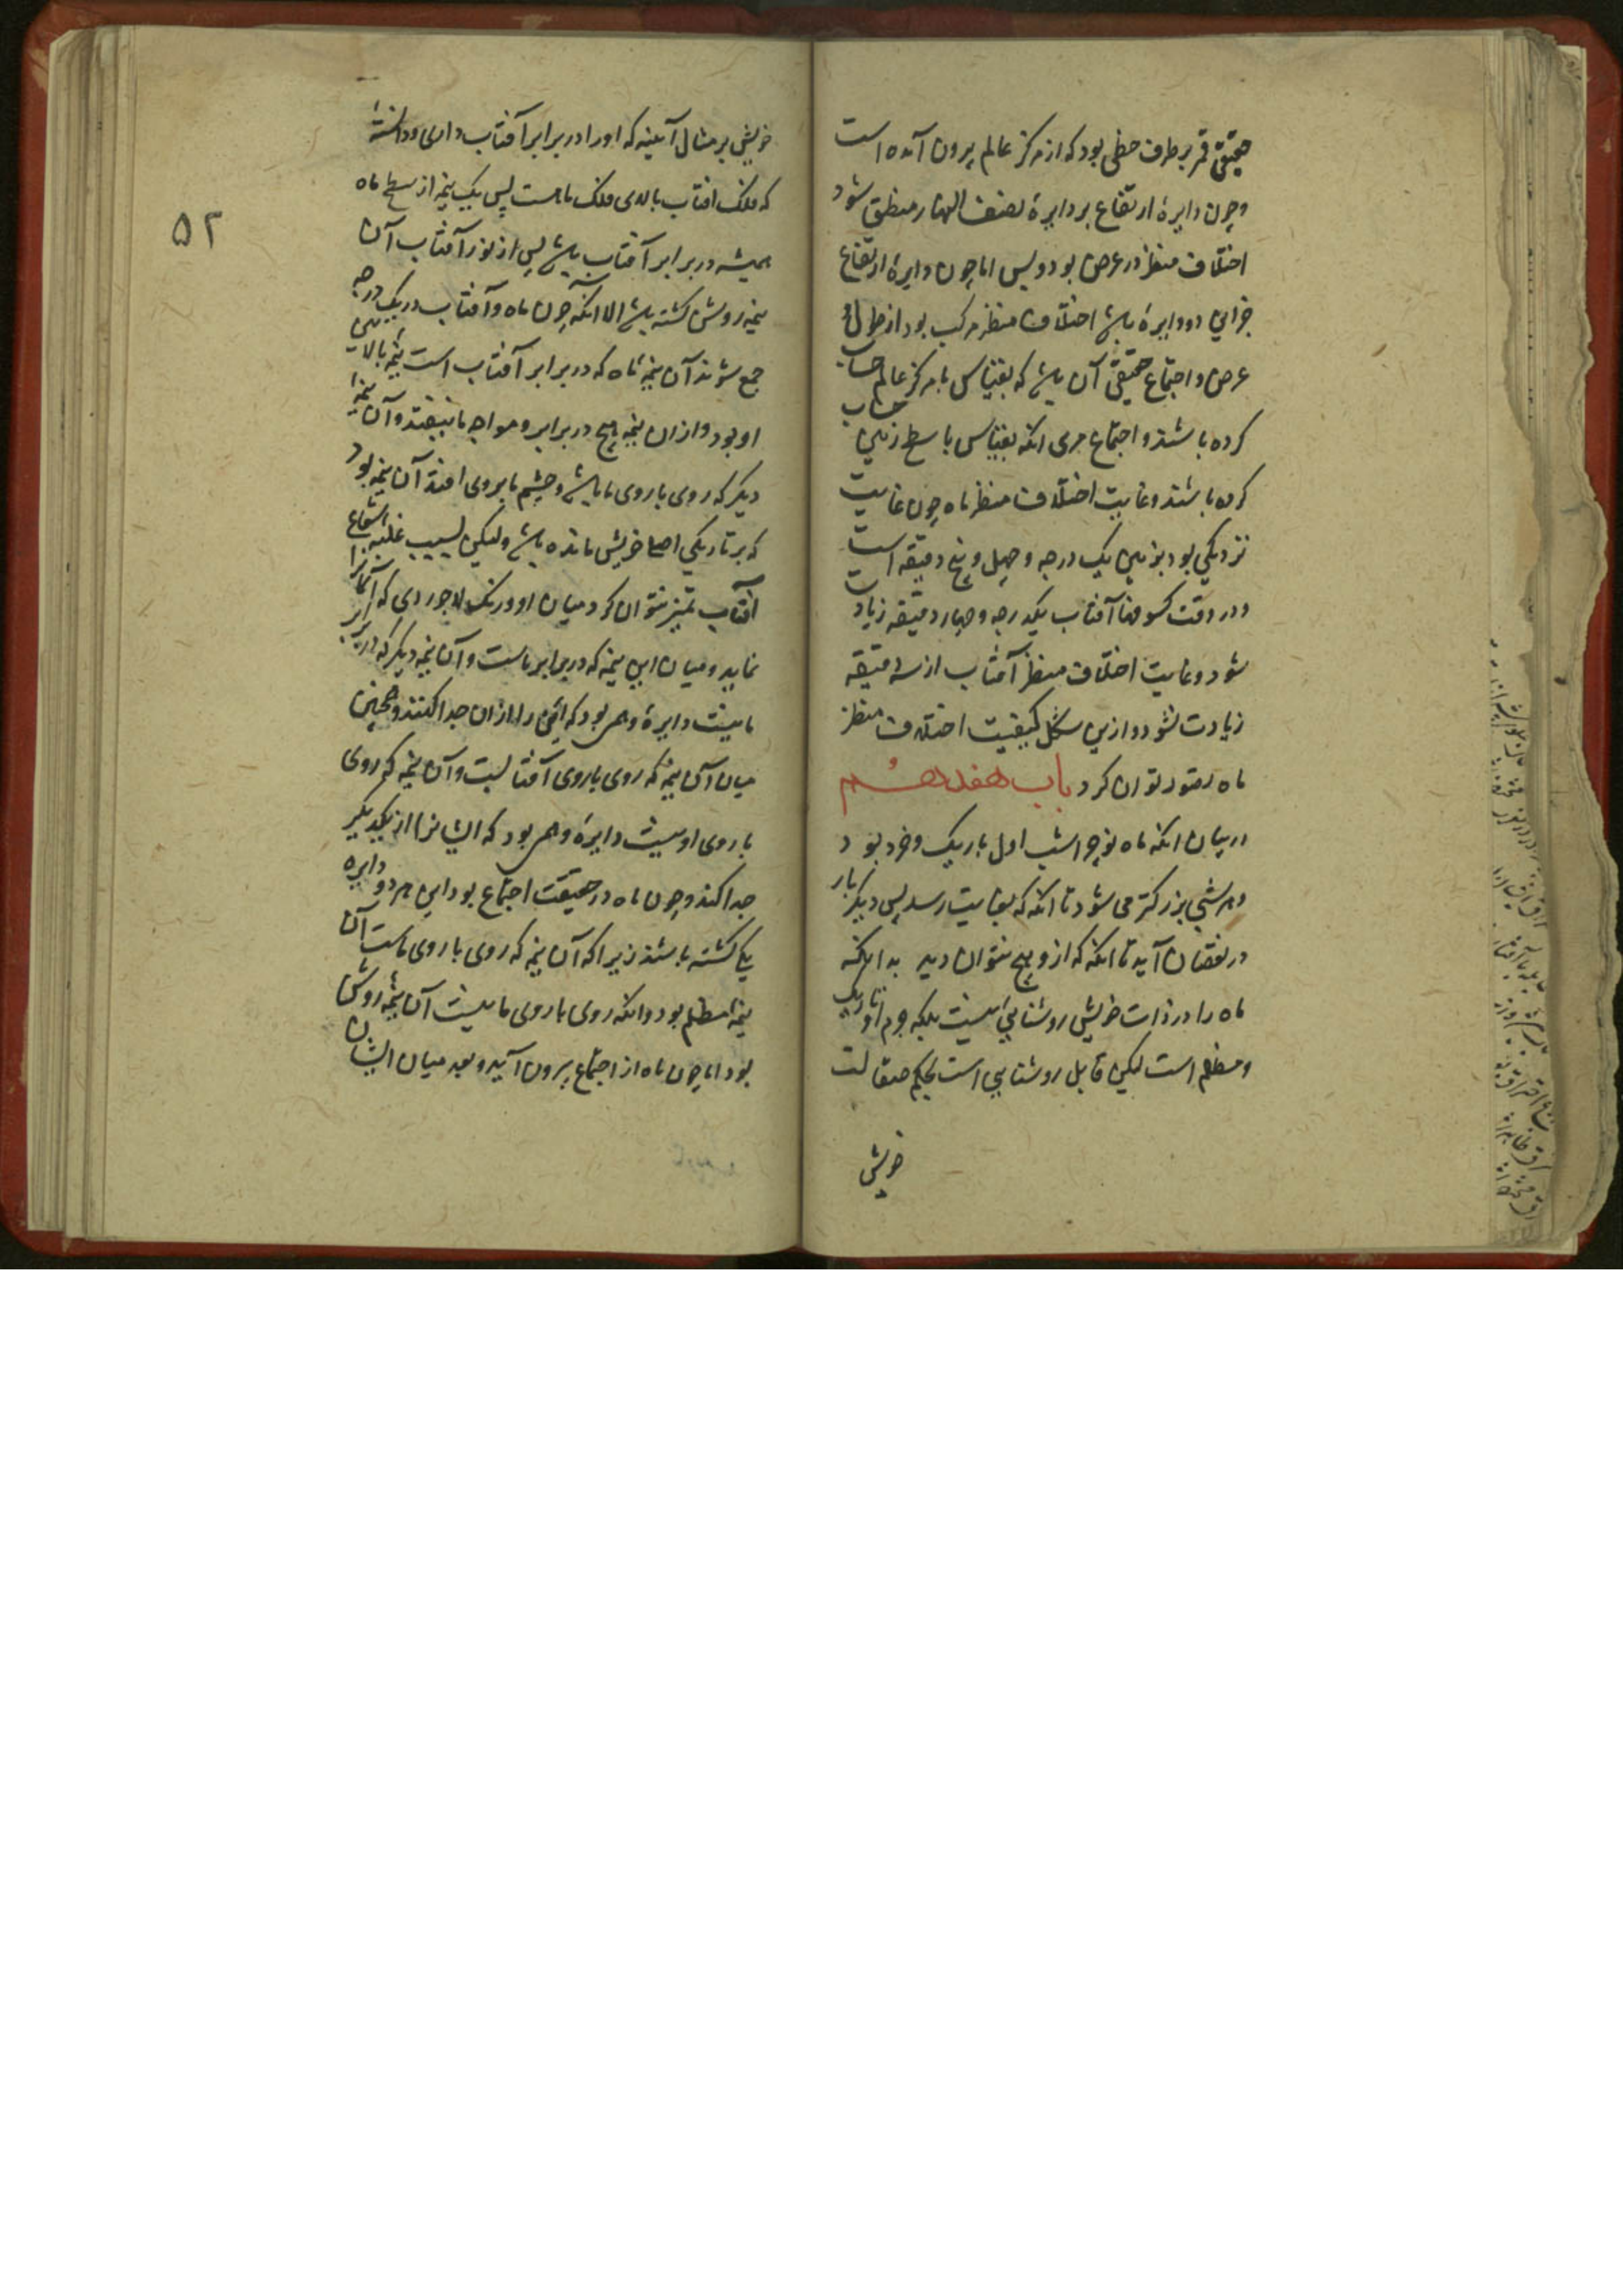 حقیقی قمر بر طرف خطی بود که از مرکز عالم بیرون آمده است
و چون دایرۀ ارتفاع بر دایرۀ نصف النهار منطبق شود
اختلاف منظر در عرض بود و بس اما چون دایرۀ ارتفاع
جز این دو دایرۀ باشد اختلاف منظر مرکب بود از طول و
عرض و اجتماع حقیقی آن باشد که بقیاس با مرکز عالم حساب
کرده باشند و اجتماع مرئی انکه بقیاس با سطح زمین حساب
کرده باشند و غایت اختلاف منظر ماه چون غایت
نزدیکی بود بزمین یک درجه و چهل و پنج دقیقه است
و در وقت کسوفها آفتاب یکدرجه و چهار دقیقه زیادت
شود و غایت اختلاف منظر آفتاب از سه دقیقه
زیادت نشود و ازین شکل کیفیت اختلاف منظر
ماه تصور توان کرد باب هفدهم
در بیان انکه ماه نو چرا شب اول باریک و خرد بود
و هر شبی بزرکتر می شود تا انکه که بغایت رسد پس دیکر بار
در نقصان آید تا انکه که از و هیچ نتوان دید بدانکه
ماه را در ذات خویش روشنایی نیست بلکه جرم او تاریک
و مظلم است لیکن قابل روشنایی است بحکم صقالت
خویش
۵۲
خویش بر مثال آیینه که او را در برابر آفتاب داری و دانسته
که فلک افتاب بالای فلک ماه است پس یک نیمه از سطح ماه
همیشه در برابر آفتاب باشد پس از نور آفتاب آن
نیمه روشن کشته باشد الا انکه چون ماه و آفتاب در یک درجه
جمع شوند آن نیمۀ ماه که در برابر آفتاب است نیمۀ بالایین
او بود و از ان نیمه هیچ در برابر و مواجه ما نیفتد و آن نیمۀ
دیکر که روی با روی ما باشد و چشم ما بروی افتد آن نیمه بود
که بر تاریکی اصل خویش مانده باشد ولیکن بسبب غلبه شعاع
آفتاب تمیز نتوان کرد میان او و رنک لاجوردی که آسمانرا
نماید و میان این نیمه که در برابر ماست و آن نیمه دیکر که در برابر
ما نیست دایرۀ وهمی بود که این را از ان جدا کند و همچنین
میان آن نیمه که روی با روی آفتابست و آن نیمه که روی
با روی او نیست دایرۀ وهمی بود که ایشانرا از یکدیکر
جدا کند و چون ماه در حقیقت اجتماع بود این هر دو دایره
یکی کشته باشند زیرا که آن نیمه که روی با روی ماست آن
نیمۀ مظلم بود و انکه روی با روی ما نیست آن نیمۀ روشن
بود اما چون ماه از اجتماع بیرون آید و بعد میان ایشان